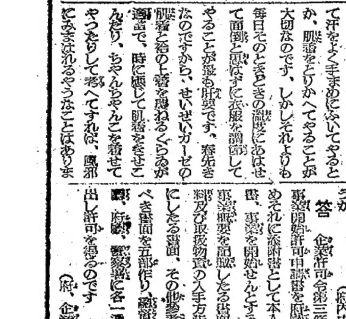 て汗をよく手まめにふいてやると
か、肌着をとりかへてやることが
大切なのです、しかしそれよりも
毎日そのときどきの温度にあはせ
て面倒と思はずに衣服を調節して
やることが最も肝要です、春先き
なのですから、せいぜいガーゼの
肌着と袷の上着を重ねるぐらゐが
適当で、時に応じて肌着をきせこ
んだり、ちゃんちゃんこを着せて
やつたりして考へてすれば、風邪
にみまはれるやうなことはありま
答 企業許可令第三
事業開始許可申請書を府
めそれに添附書として本人
書、事業を開始せんとする
事業概要を記載したる書面
料及び取扱物資の入手方
にしたる書面、その他参考
べき書面を五部作り
府県、警察署に各一通
出し許可を得るのです
(府、企